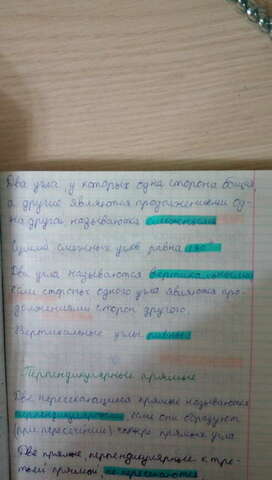 Два угла у которых одна сторона общая,
а другие являются продолжением од-
на друга называются смежными
Сумма смежных углов равна 180°
Два угла называются вертикальными
если стороны одного угла являются про-
должениями сторон другого.
Вертикальные углы равны
Перпендикулярные прямые
Две пересекающиеся прямые называются
перпендикулярными, если они образуют
(при пересечении) четыре прямых угла
Две прямые, перпендикулярные к тре-
тьей прямой, не пересекаются